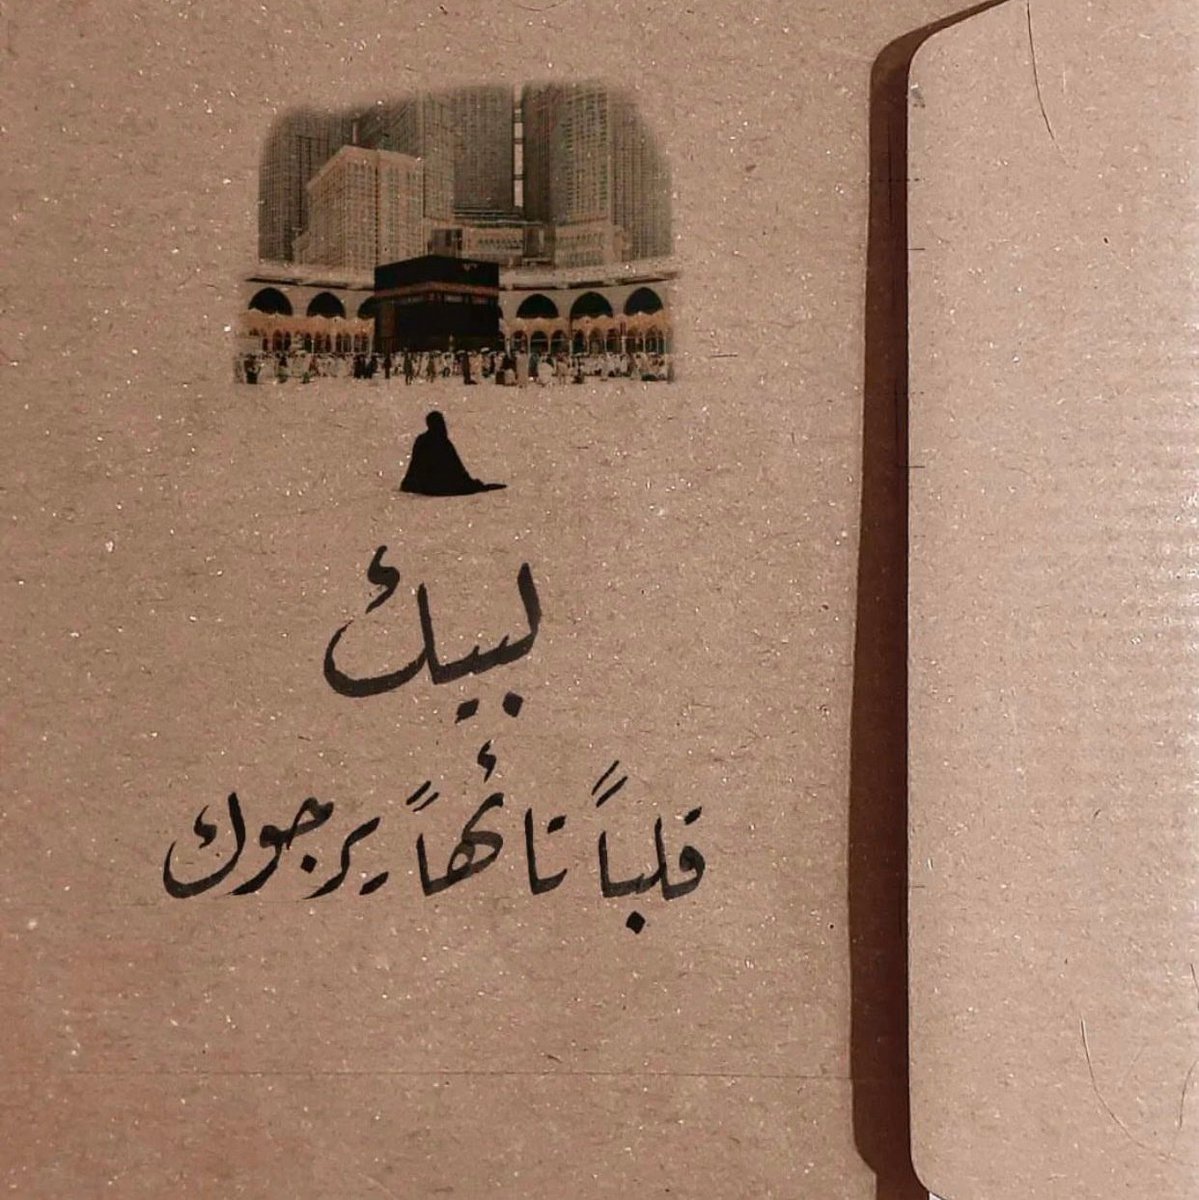 لبيك
قلباً تائهاً يرجوك